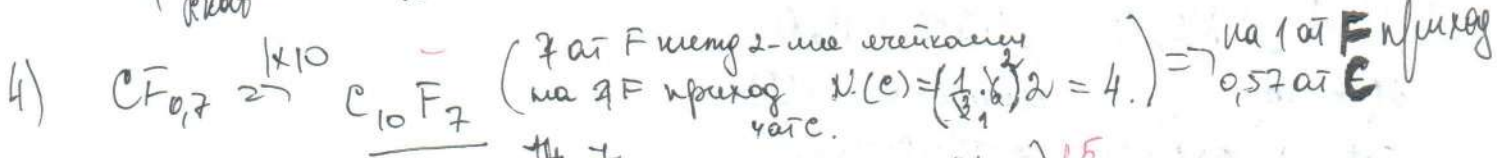 4) CF₀,₇ => |×10 C₁₀F₇ (7 ат F между 2-мя ячейками на 7F приход N(C)=(1/3·6)2 = 4.) => на 1 ат F приход 0,57 ат C
4 ат C.